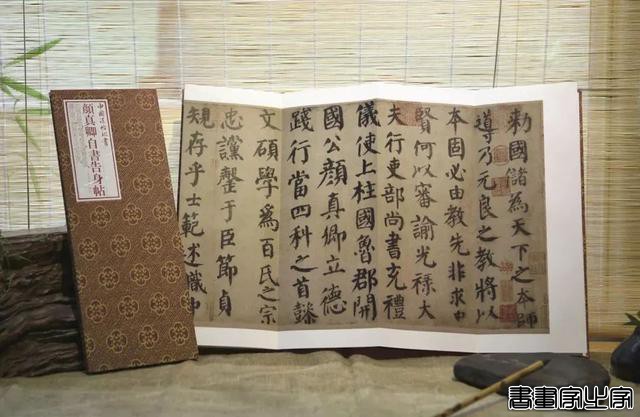 顏真卿自書告身帖
勑國儲為天下之本師
導乃元良之教將以
本固必由教先非求忠
賢何以審諭光祿大
夫行吏部尚書充禮
儀使上柱國魯郡開
國公顏真卿立德
踐行當四科之首懿
文碩學為百氏之宗
忠讜罄于臣節貞
規存乎士範述職中
書畫家之家